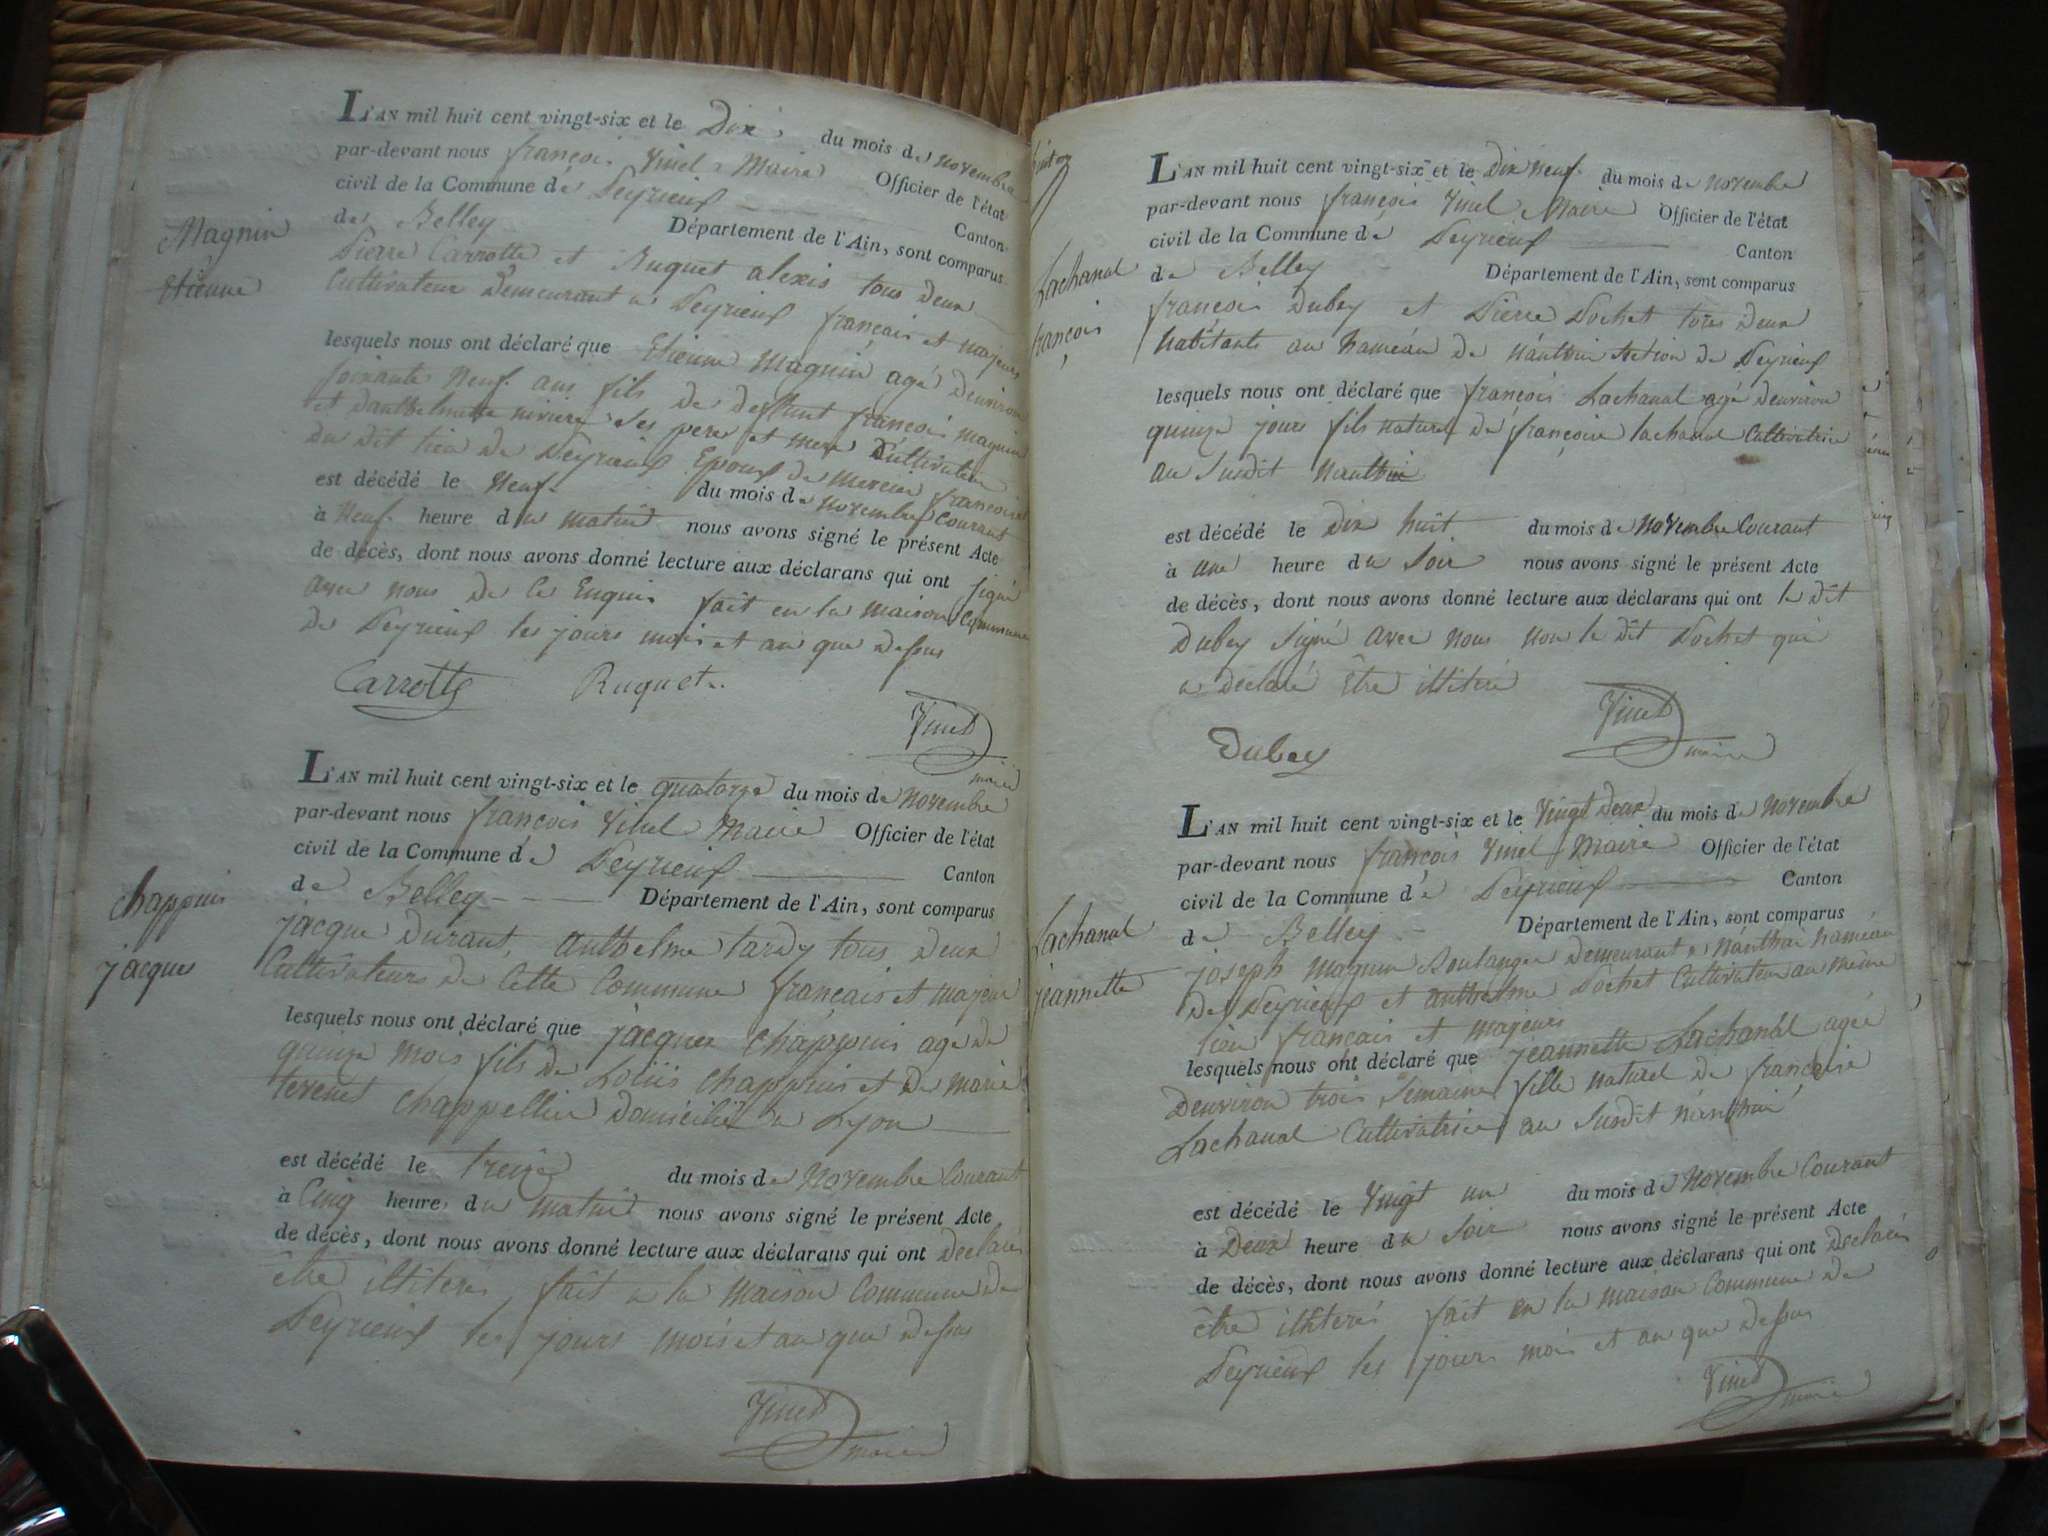 L'AN mil huit cent vingt-six et le Dix du mois de novembre
par-devant nous françois Vinel Maire Officier de l'état
civil de la Commune de Peyrieux Canton
de Belley Département de l'Ain, sont comparus
Pierre Carrotte et Ruguet alexis tous deux
Cultivateur Demeurant a Peyrieux français et majeurs
Magnin
Etienne
lesquels nous ont déclaré que Etienne Magnin agé Denviron
soixante Neuf ans fils de deffunt françois magnin
et danthelmette ses pere et mere Cultivateur
du dit lieu de Peyrieux Epoux de Mercier francoise
est décédé le Neuf du mois de novembre Courant
à Neuf heure du matin nous avons signé le présent Acte
de décès, dont nous avons donné lecture aux déclarans qui ont signé
avec nous de ce Enquis fait en la maison Commune
de Peyrieux les jours mois et an que dessus
Carrotte Ruguet
Vinel
maire
L'AN mil huit cent vingt-six et le quatorze du mois de Novembre
par-devant nous françois Vinel Maire Officier de l'état
civil de la Commune de Peyrieux Canton
de Belley Département de l'Ain, sont comparus
chappuis
jacques
jacque Durant, anthelme tardy tous deux
Cultivateurs de Cette Commune français et majeur
lesquels nous ont déclaré que jacques chappuis age de
quinze mois fils de Loüis chappuis et de marie
tevenet chappellier domicilié a Lyon
est décédé le treize du mois de Novembre Courant
à Cinq heure du matin nous avons signé le présent Acte
de décès, dont nous avons donné lecture aux déclarans qui ont Declarés
être illiterés fait a la maison Commune de
Peyrieux les jours mois et an que dessus
Vinel
maire
L'AN mil huit cent vingt-six et le Dix Neuf du mois de Novembre
par-devant nous françois Vinel Maire Officier de l'état
civil de la Commune de Peyrieux Canton
de Belley Département de l'Ain, sont comparus
Lachanal
françois
françois Dubey et Pierre Pochet tous deux
habitants au hameau de Nanthui Section de Peyrieux
lesquels nous ont déclaré que françois Lachanal agé Denviron
quinze jours fils naturel de françoise lachanal Cultivatrice
au Susdit Nanthui
est décédé le Dix huit du mois de Novembre Courant
à une heure du Soir nous avons signé le présent Acte
de décès, dont nous avons donné lecture aux déclarans qui ont le dit
Dubey Signé avec nous non le dit Pochet qui
a declaré Être illiteré
Vinel
maire
Dubey
L'AN mil huit cent vingt-six et le Vingt Deux du mois de Novembre
par-devant nous françois Vinel Maire Officier de l'état
civil de la Commune de Peyrieux Canton
de Belley Département de l'Ain, sont comparus
Lachanal
jeannette
joseph Magnin Boulanger demeurant a Nanthui hameau
de Peyrieux et anthelme Pochet Cultivateur au même
lieu français et majeurs
lesquels nous ont déclaré que jeannette Lachanal agée
Denviron trois Semaines fille naturel de françoise
Lachanal Cultivatrice au Susdit Nanthui
est décédé le Vingt un du mois de Novembre Courant
à Deux heure du Soir nous avons signé le présent Acte
de décès, dont nous avons donné lecture aux déclarans qui ont Declarés
être illiterés fait en la maison Commune de
Peyrieux les jours mois et an que dessus
Vinel
maire